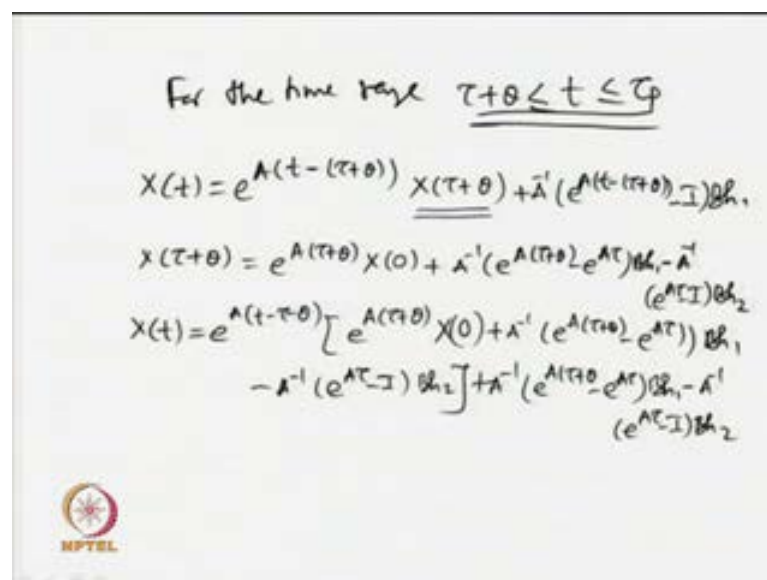 For the time range τ+θ ≤ t ≤ τp
X(t) = e^{A(t-(τ+θ))} X(τ+θ) + A^{-1}(e^{A(t-(τ+θ))}-I)Bh₁
X(τ+θ) = e^{A(τ+θ)} X(0) + A^{-1}(e^{A(τ+θ)}-e^{Aτ})Bh₁ - A^{-1}
(e^{Aτ}-I)Bh₂
X(t) = e^{A(t-τ-θ)} [e^{A(τ+θ)} X(0) + A^{-1}(e^{A(τ+θ)}-e^{Aτ}))Bh₁
- A^{-1}(e^{Aτ}-I)Bh₂] + A^{-1}(e^{A(τ+θ}-e^{Aτ})Bh₁ - A^{-1}
(e^{Aτ}-I)Bh₂
NPTEL